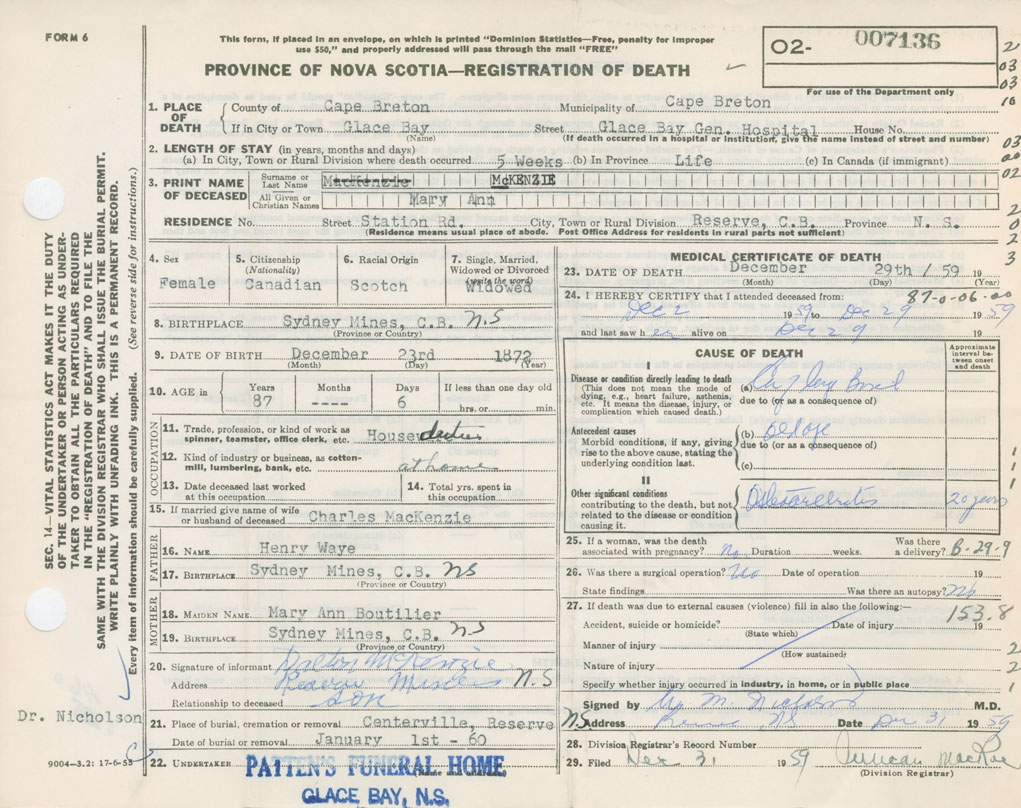 FORM 6
This form, if placed in an envelope, on which is printed "Dominion Statistics—Free, penalty for improper
use $50," and properly addressed will pass through the mail "FREE"
PROVINCE OF NOVA SCOTIA—REGISTRATION OF DEATH
02- 007136
For use of the Department only
2
03
03
10
03
00
02
2
0
2
3
SEC. 14—VITAL STATISTICS ACT MAKES IT THE DUTY
OF THE UNDERTAKER OR PERSON ACTING AS UNDER-
TAKER TO OBTAIN ALL THE PARTICULARS REQUIRED
IN THE "REGISTRATION OF DEATH" AND TO FILE THE
SAME WITH THE DIVISION REGISTRAR WHO SHALL ISSUE THE BURIAL PERMIT.
WRITE PLAINLY WITH UNFADING INK. THIS IS A PERMANENT RECORD.
Every item of information should be carefully supplied. (See reverse side for instructions.)
1. PLACE OF DEATH County of Cape Breton Municipality of Cape Breton
If in City or Town Glace Bay Street Glace Bay Gen. Hospital House No.
(Name) (If death occurred in a hospital or Institution, give the name instead of street and number)
2. LENGTH OF STAY (in years, months and days)
(a) In City, Town or Rural Division where death occurred 5 Weeks (b) In Province Life (c) In Canada (if immigrant)
3. PRINT NAME OF DECEASED Surname or Last Name MacKenzie McKENZIE
All Given or Christian Names Mary Ann
RESIDENCE No. Street Station Rd. City, Town or Rural Division Reserve, C.B. Province N. S.
(Residence means usual place of abode. Post Office Address for residents in rural parts not sufficient)
4. Sex Female
5. Citizenship (Nationality) Canadian
6. Racial Origin Scotch
7. Single, Married, Widowed or Divorced (write the word) Widowed
8. BIRTHPLACE Sydney Mines, C.B. N.S
(Province or Country)
9. DATE OF BIRTH December 23rd 1872
(Month) (Day) (Year)
10. AGE in Years 87 Months ---- Days 6 If less than one day old hrs. or min.
OCCUPATION
11. Trade, profession, or kind of work as spinner, teamster, office clerk, etc. House duties
12. Kind of industry or business, as cotton-mill, lumbering, bank, etc. at home
13. Date deceased last worked at this occupation
14. Total yrs. spent in this occupation
15. If married give name of wife or husband of deceased Charles MacKenzie
FATHER
16. NAME Henry Waye
17. BIRTHPLACE Sydney Mines, C.B. NS
(Province or Country)
MOTHER
18. MAIDEN NAME Mary Ann Boutilier
19. BIRTHPLACE Sydney Mines, C.B. NS
(Province or Country)
20. Signature of informant Dalton McKenzie
Address Reserve Mines N.S
Relationship to deceased Son
21. Place of burial, cremation or removal Centerville, Reserve
Date of burial or removal January 1st - 60
22. UNDERTAKER PATTEN'S FUNERAL HOME
GLACE BAY, N.S.
Dr. Nicholson
9004—3.2: 17-6-53
MEDICAL CERTIFICATE OF DEATH
23. DATE OF DEATH December 29th / 59 19
(Month) (Day) (Year)
24. I HEREBY CERTIFY that I attended deceased from: 87-0-06-00
Dec 2 19 59 to Dec 29 19 59
and last saw h er alive on Dec 29 19 59
CAUSE OF DEATH
Approximate interval between onset and death
I
Disease or condition directly leading to death (a)
(This does not mean the mode of dying, e.g., heart failure, asthenia, etc. It means the disease, injury, or complication which caused death.)
due to (or as a consequence of)
Antecedent causes (b)
Morbid conditions, if any, giving rise to the above cause, stating the underlying condition last.
due to (or as a consequence of)
(c)
II
Other significant conditions
contributing to the death, but not related to the disease or condition causing it.
20 years
1
1
1
25. If a woman, was the death associated with pregnancy? No Duration weeks. Was there a delivery? B-29-9
26. Was there a surgical operation? No Date of operation 19
State findings Was there an autopsy? No
27. If death was due to external causes (violence) fill in also the following:— 153.8
Accident, suicide or homicide? Date of injury 19
(State which)
Manner of injury 2
(How sustained)
Nature of injury 2
Specify whether injury occurred in industry, in home, or in public place 1
Signed by M. Nicholson M.D.
N.S Address Reserve NS Date Dec 31 19 59
28. Division Registrar's Record Number
29. Filed Dec 31 19 59 Duncan MacRae
(Division Registrar)